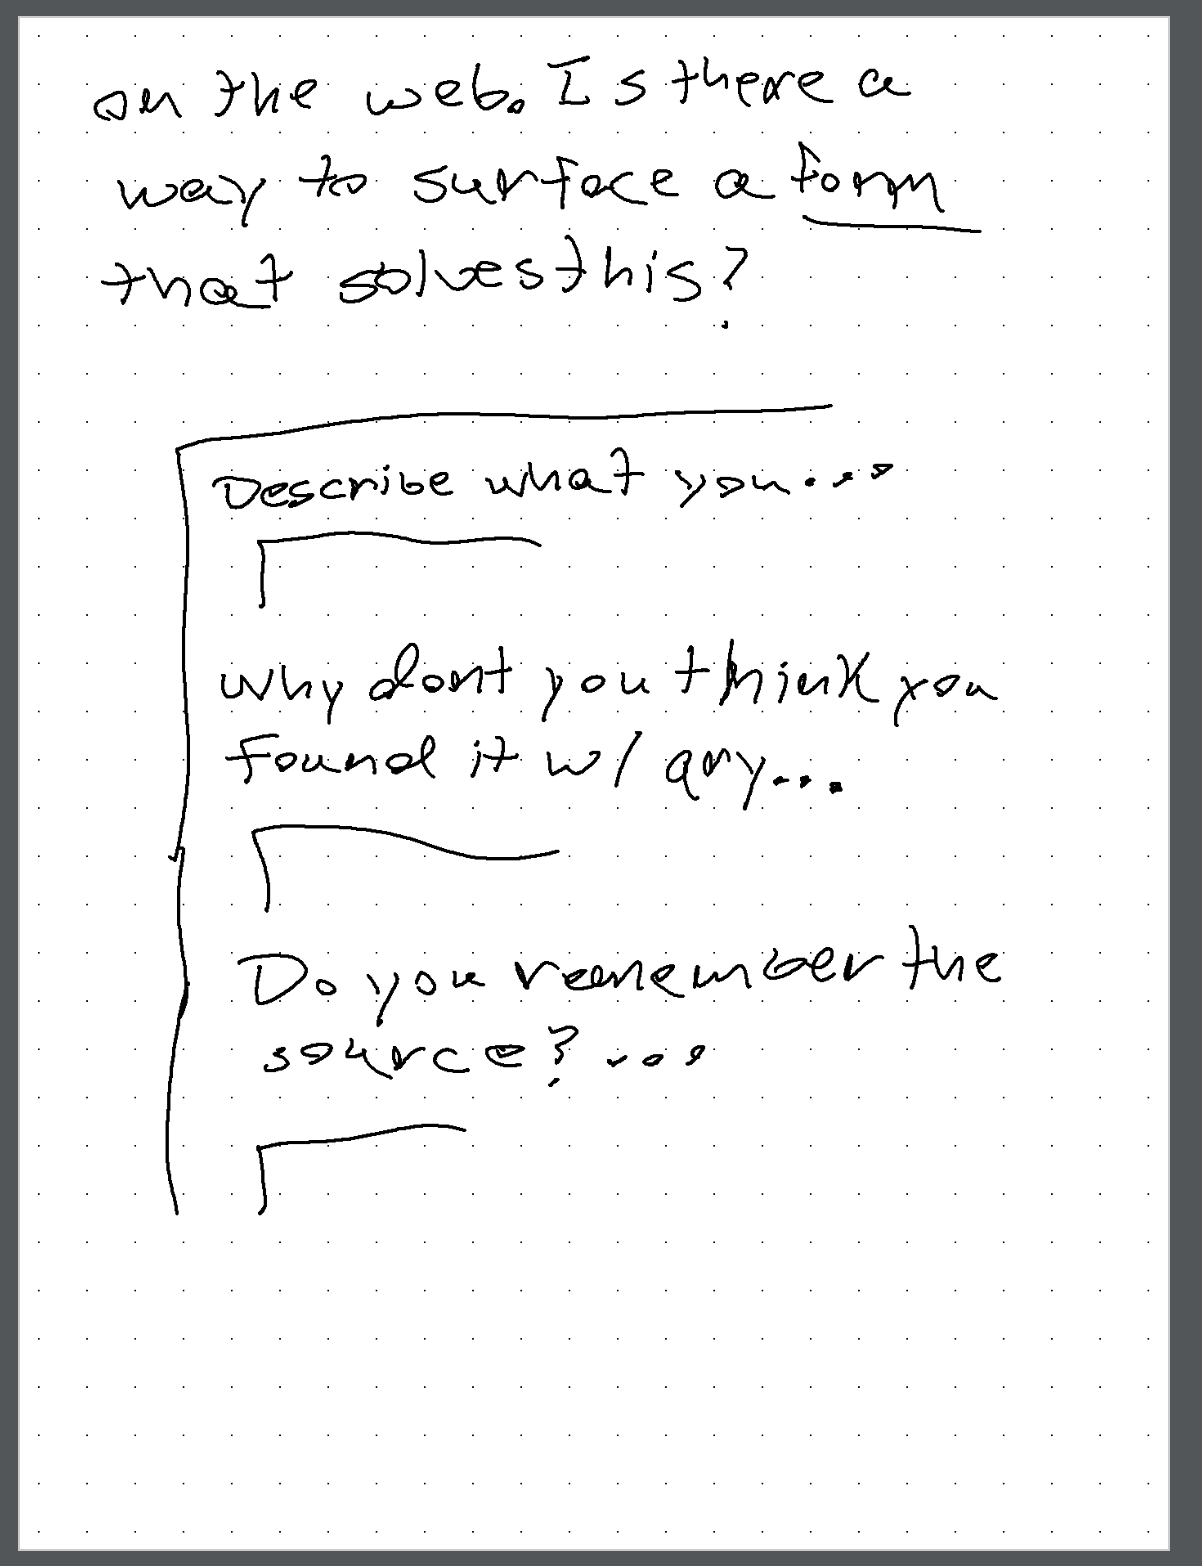 on the web. Is there a
way to surface a form
that solves this?
Describe what you...
why dont you think you
found it w/ qry...
Do you remember the
source? ...